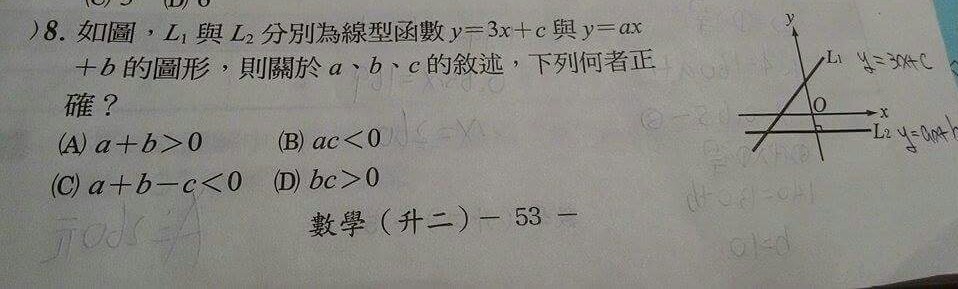 )8. 如圖，L₁ 與 L₂ 分別為線型函數 y=3x+c 與 y=ax
+b 的圖形，則關於 a、b、c 的敘述，下列何者正
確？
(A) a+b>0 (B) ac<0
(C) a+b−c<0 (D) bc>0
數學（升二）− 53 −
y
L₁ y=3x+c
O
x
L₂ y=ax+b